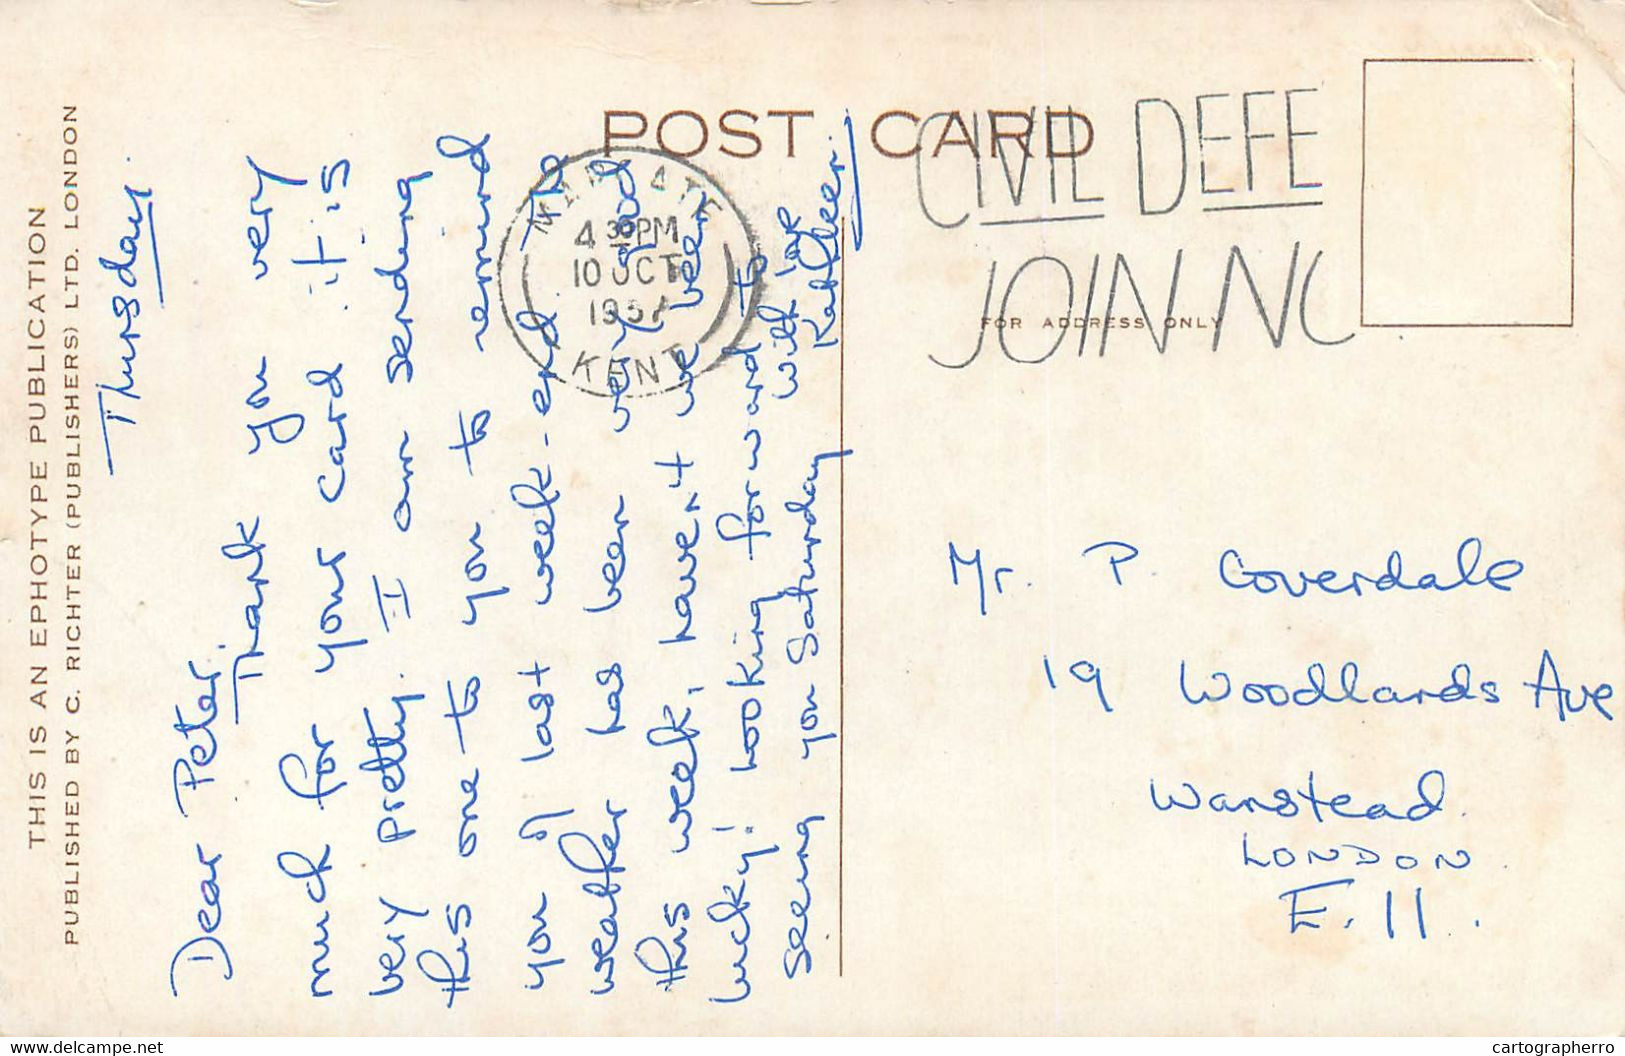 THIS IS AN EPHOTYPE PUBLICATION
PUBLISHED BY C. RICHTER (PUBLISHERS) LTD. LONDON
POST CARD
FOR ADDRESS ONLY
MARGATE
4 30 PM
10 OCT
1957
KENT
CIVIL DEFE
JOIN NO
Thursday.
Dear Peter.
Thank you very
much for your card it is
very pretty. I am sending
this one to you to remind
you of last week-end. The
weather has been very good
this week, haven't we been
lucky! Looking forward to
seeing you Saturday with love
Kathleen.
Mr. P. Coverdale
19 Woodlands Ave
Wanstead.
LONDON.
E.11.
www.delcampe.net
cartographerro